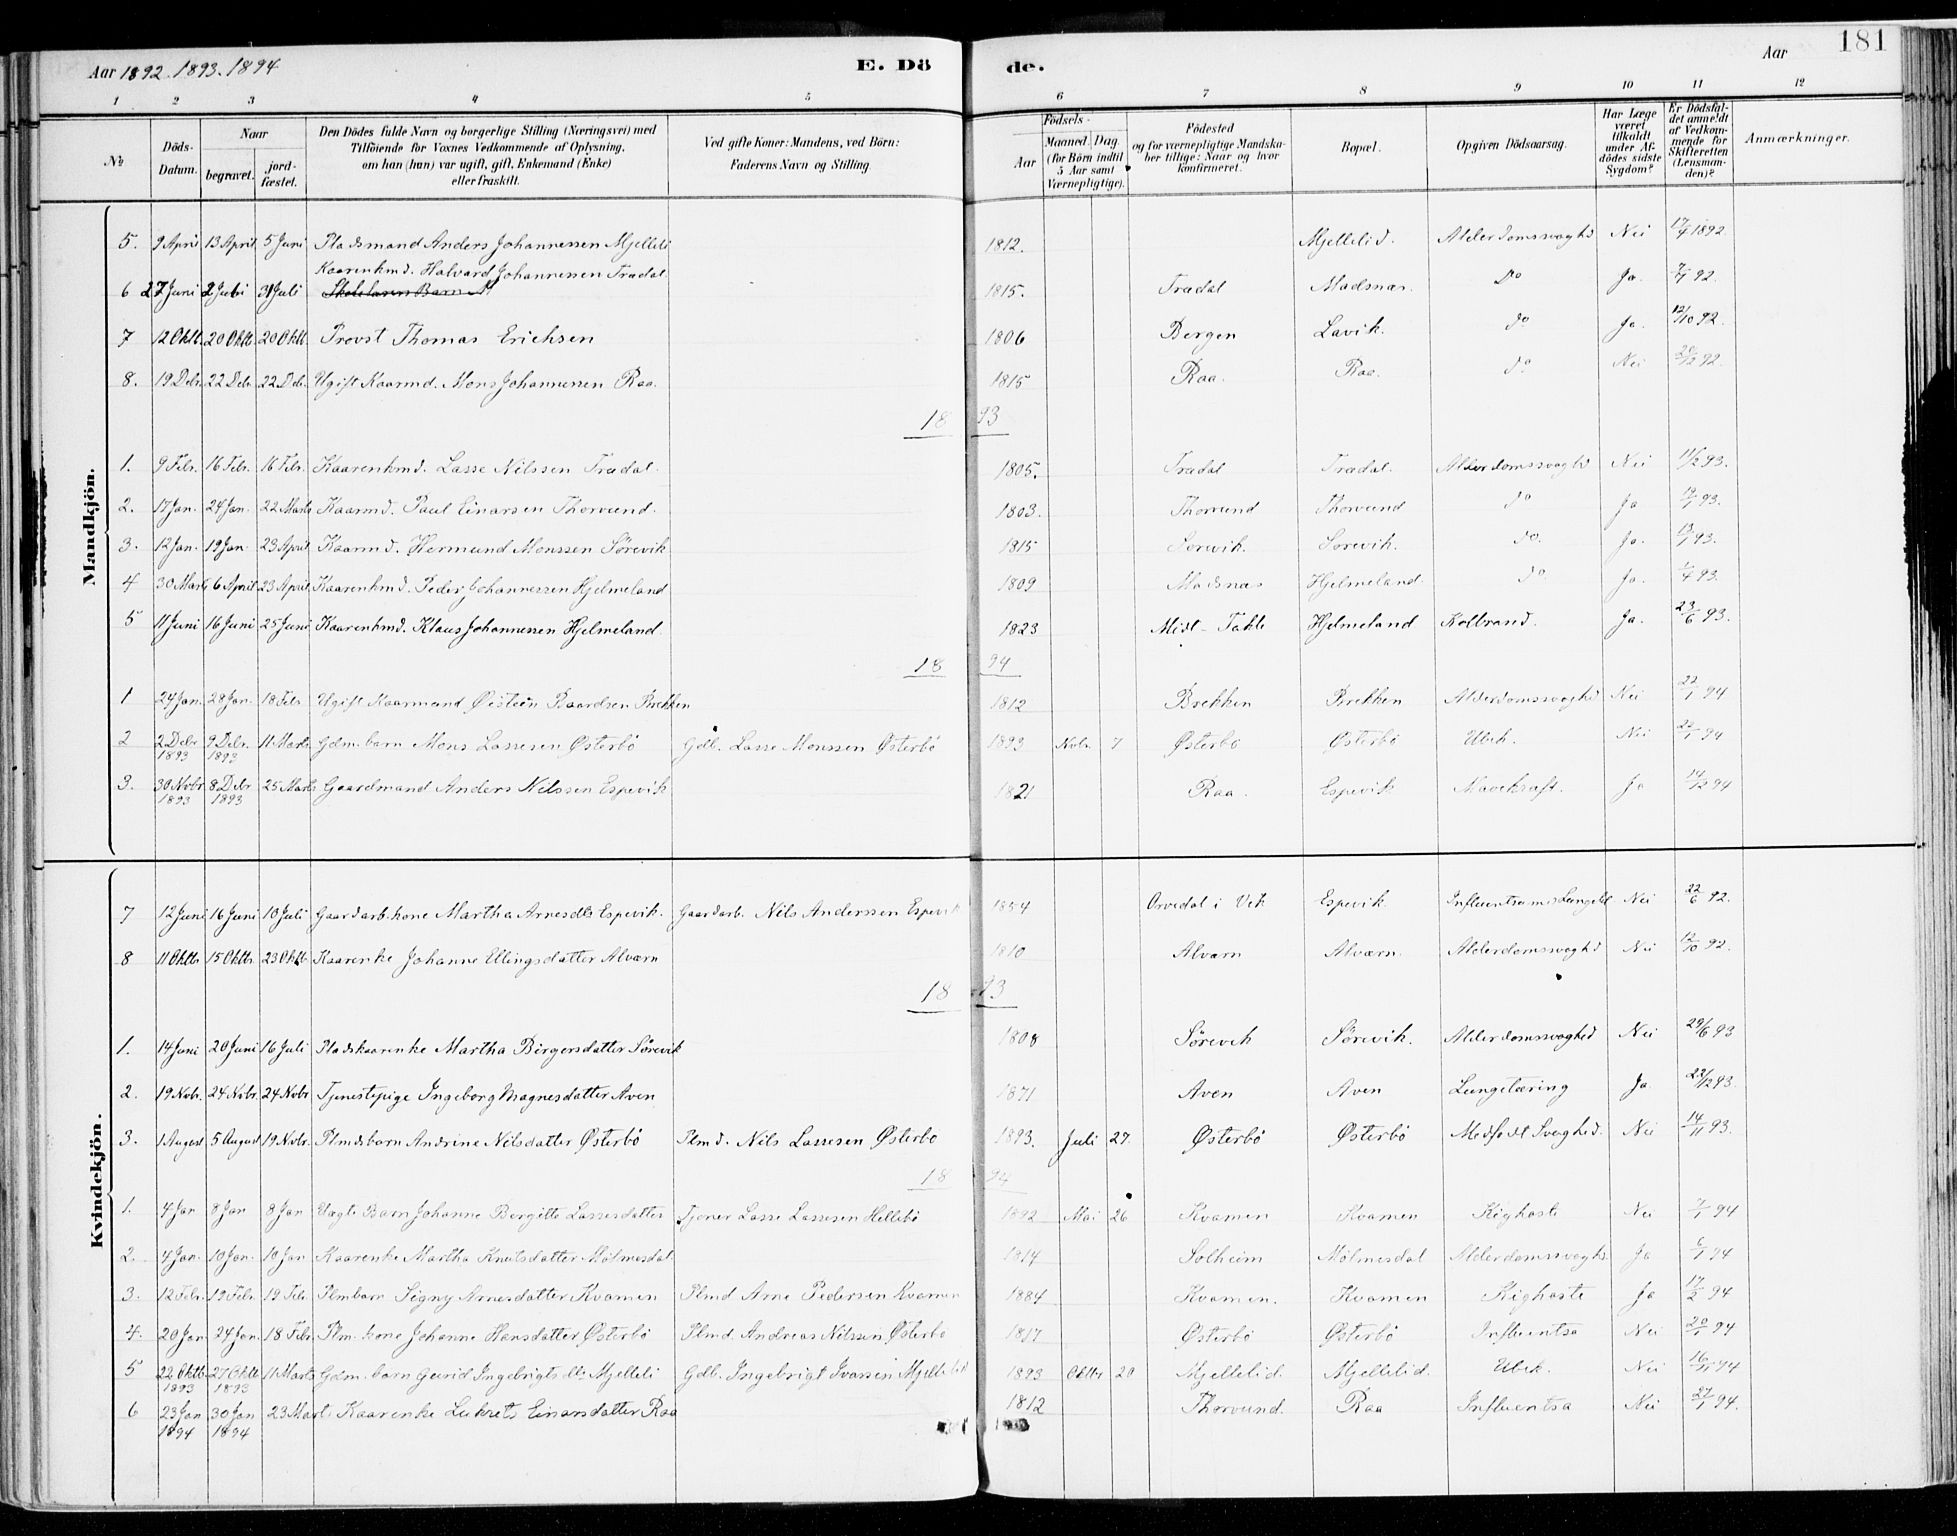 Aar 1892. 1893. 1894 E. Dö de. Aar 181
1 2 3 4 5 6 7 8 9 10 11 12
№ Döds-Datum. Naar begravet. jordfæstet. Den Dödes fulde Navn og borgerlige Stilling (Næringsvei) med Tilföiende for Voxnes Vedkommende af Oplysning, om han (hun) var ugift, gift, Enkemand (Enke) eller fraskilt. Ved gifte Koner: Mandens, ved Börn: Faderens Navn og Stilling. Födsels- Aar Maaned Dag (for Börn indtil 5 Aar samt Værnepligtige). Födested og for værnepligtige Mandskaber tillige: Naar og hvor konfirmeret. Bopæl. Opgiven Dödsaarsag. Har Læge været tilkaldt under Afdödes sidste Sygdom? Er Dödsfaldet anmeldt af Vedkommende for Skifteretten (Lensmanden)? Anmærkninger.
Mandkjön.
5. 9 April 13 April 5 Juni Pladsmand Anders Johannessen Mjelleli 1812. Mjellelid. Alderdomssvaghd Nei 17/4 1892.
6 27 Juni 2 Juli 31 Juli Kaarenkmd. Halvard Johannessen Tradal 1815. Tradal Madsnæs. Do Ja. 92.
Skolelærers Barn N
7 12 Oktb. 20 Oktb. 20 Oktb Provst Thomas Erichsen 1806 Bergen Lavik. do Ja. 12/10 92.
8. 19 Debr. 22 Debr 22 Debr. Ugift Kaarmd. Mons Johannessen Raa. 1815 Raa. Raa. do Nei 20/12 92.
18 93
1. 9 Febr. 16 Febr. 16 Febr. Kaarenkmd. Lasse Nilssen Tradal. 1805. Tradal Tradal. Alderdomssvaghd Nei 11/2 93.
2. 17 Jan. 24 Jan. 22 Marts Kaarmd. Paul Einarsen Thorvund. 1803. Thorvund Thorvund do Ja 19/1 93.
3. 12 Jan. 19 Jan. 23 April Kaarmd. Hermund Monssen Sörevik 1815 Sorevik. Sorevik. do. Ja. 13/1 93.
4 30 Marts 6 April 23 April Kaarenkmd. Peder Johannessen Hjelmeland 1809 Madsnæs Hjelmeland. do Ja. 93.
5 11 Juni 16 Juni 25 Juni Kaarenkmd. Klaus Johannessen Hjelmeland. 1823 Midt-Takle Hjelmeland Kolbrand. Ja. 23/6 93.
18 94
1 24 Jan. 28 Jan. 18 Febr. Ugift Kaarmand Østein Baardsen Brekken 1812 Brekken Brekken Alderdomssvaghed Nei 22/1 94
2 2 Debr 1893 9 Debr. 1893 11 Marts Gdm. barn Mons Lassesen Østerbö Gdb. Lasse Monssen Østerbö 1893 Nobr. 7 Østerbö Østerbö Ubek. Nei 94
3. 30 Nobr 1893 8 Debr 1893 25 Marts Gaardmand Anders Nilssen Espevik 1821 Raa. Espevik Mavekræft. Ja 14/12 94
Kvindekjön.
7 12 Juni 16 Juni 10 Juli Gaardarb. kone Martha Arnesdtr Espevik. Gaardarb. Nils Anderssen Espevik 1854 Orvedal i Vik Espevik. Nei 22/6 92.
8 11 Oktb 15 Oktb. 23 Oktb Kaarenke Johanne Ellingsdatter Alværn 1810 Alværn Alværn. Alderdomssvaghd Nei 12/10 92.
18 93
1. 14 Juni 20 Juni 16 Juli Pladskaarenke Martha Birgersdatter Sörevik 1808 Sörevik Sörevik. Alderdomssvaghed Nei 29/6 93
2. 19 Nobr. 24 Nobr. 24 Nobr Tjenestepige Ingeborg Magnesdatter Aven 1871 Aven Aven Lungetæring Ja. 93.
3. 1 August 5 August 19 Nobr. Plmdsbarn Andrine Nilsdatter Østerbö Plmd. Nils Lassesen Østerbö 1893. Juli 27. Østerbö Østerbö Medfödt Svaghed. Nei 14/11 93.
18 94
1. 4 Jan 8 Jan 8 Jan Uægte Barn Johanne Bergitte Lassesdatter Tjener Lasse Lassesen Hellebö 1892 Mai 26 Kvamen Kvamen Kighoste Nei 7/1 94
2. 4 Jan. 10 Jan. 10 Jan Kaarenke Martha Knutsdatter Mölmesdal 1814 Solheim Mölmesdal Alderdomssvaghd. Ja 6/1 94
3. 12 Febr. 19 Febr. 19 Febr. Plmbarn Signy Arnesdatter Kvamen Plmd Arne Pedersen Kvamen 1884 Kvamen. Kvamen Kighoste Ja 17/2 94
4. 20 Jan 24 Jan. 18 Febr. Plm. kone Johanne Hansdatter Østerbö Plmd. Andreas Nilssen Østerbö 1817 Østerbö Østerbö Influentsa Nei 20/1 94
5 22 Oktb 1893 27 Oktb 1893 11 Marts Gdm. barn Gurid Ingebrigtsdtr Mjelleli Gdb. Ingebrigt Ivarssen Mjellelid 1893 Oktbr 20 Mjellelid. Mjellelid. Ubek. Nei 94
6 23 Jan 1894 30 Jan 1894 23 Marts Kaarenke Lukrets Einarsdatter Raa 1812 Thorvund. Raa Influentsa Nei 27/1 94.